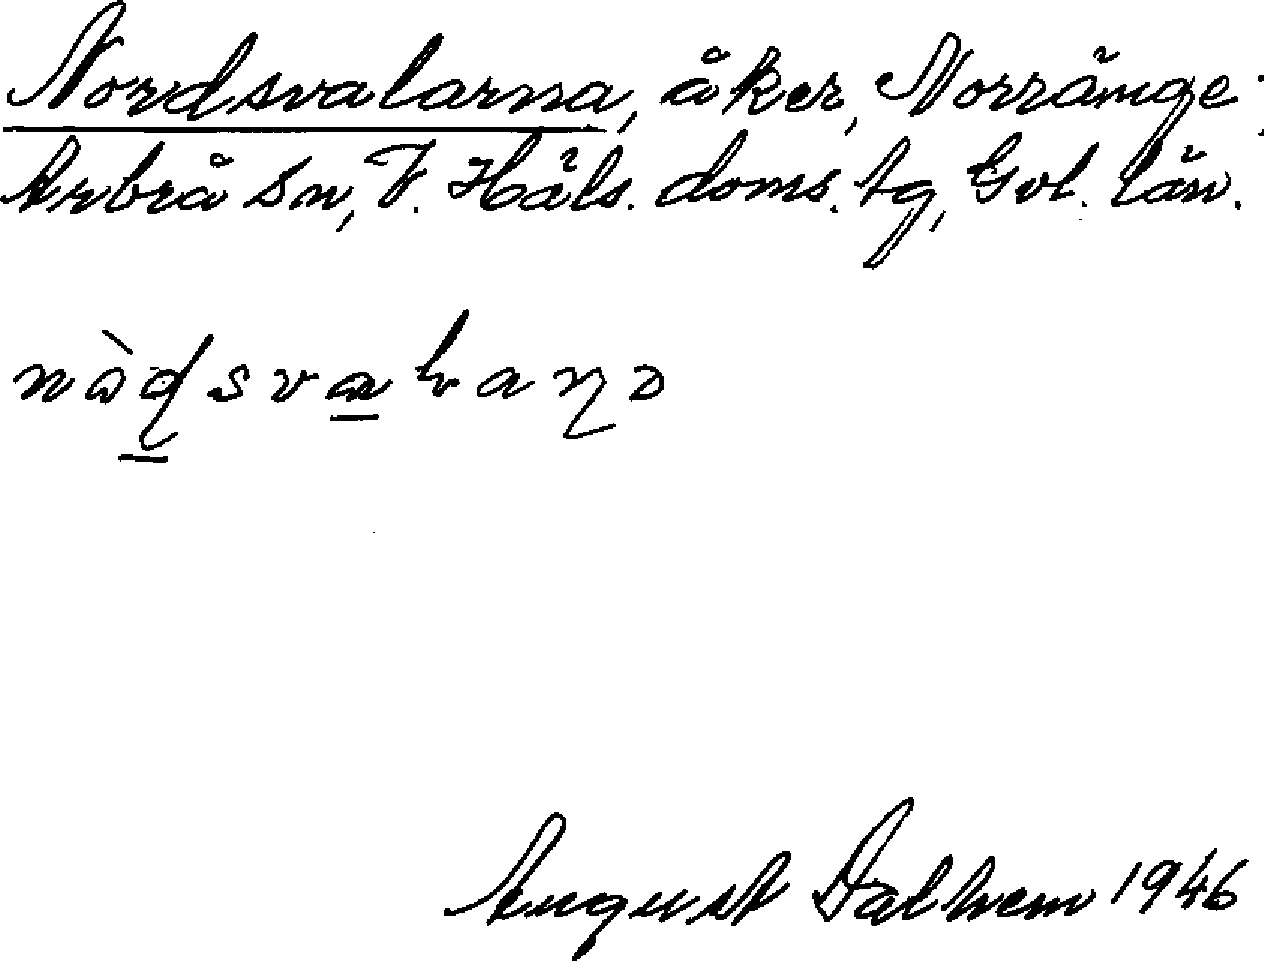 Nordsvalarna, åker, Norränge,
Arbrå sn, V. Häls. doms. tg, Gvl. län.
August Dalhem 1946